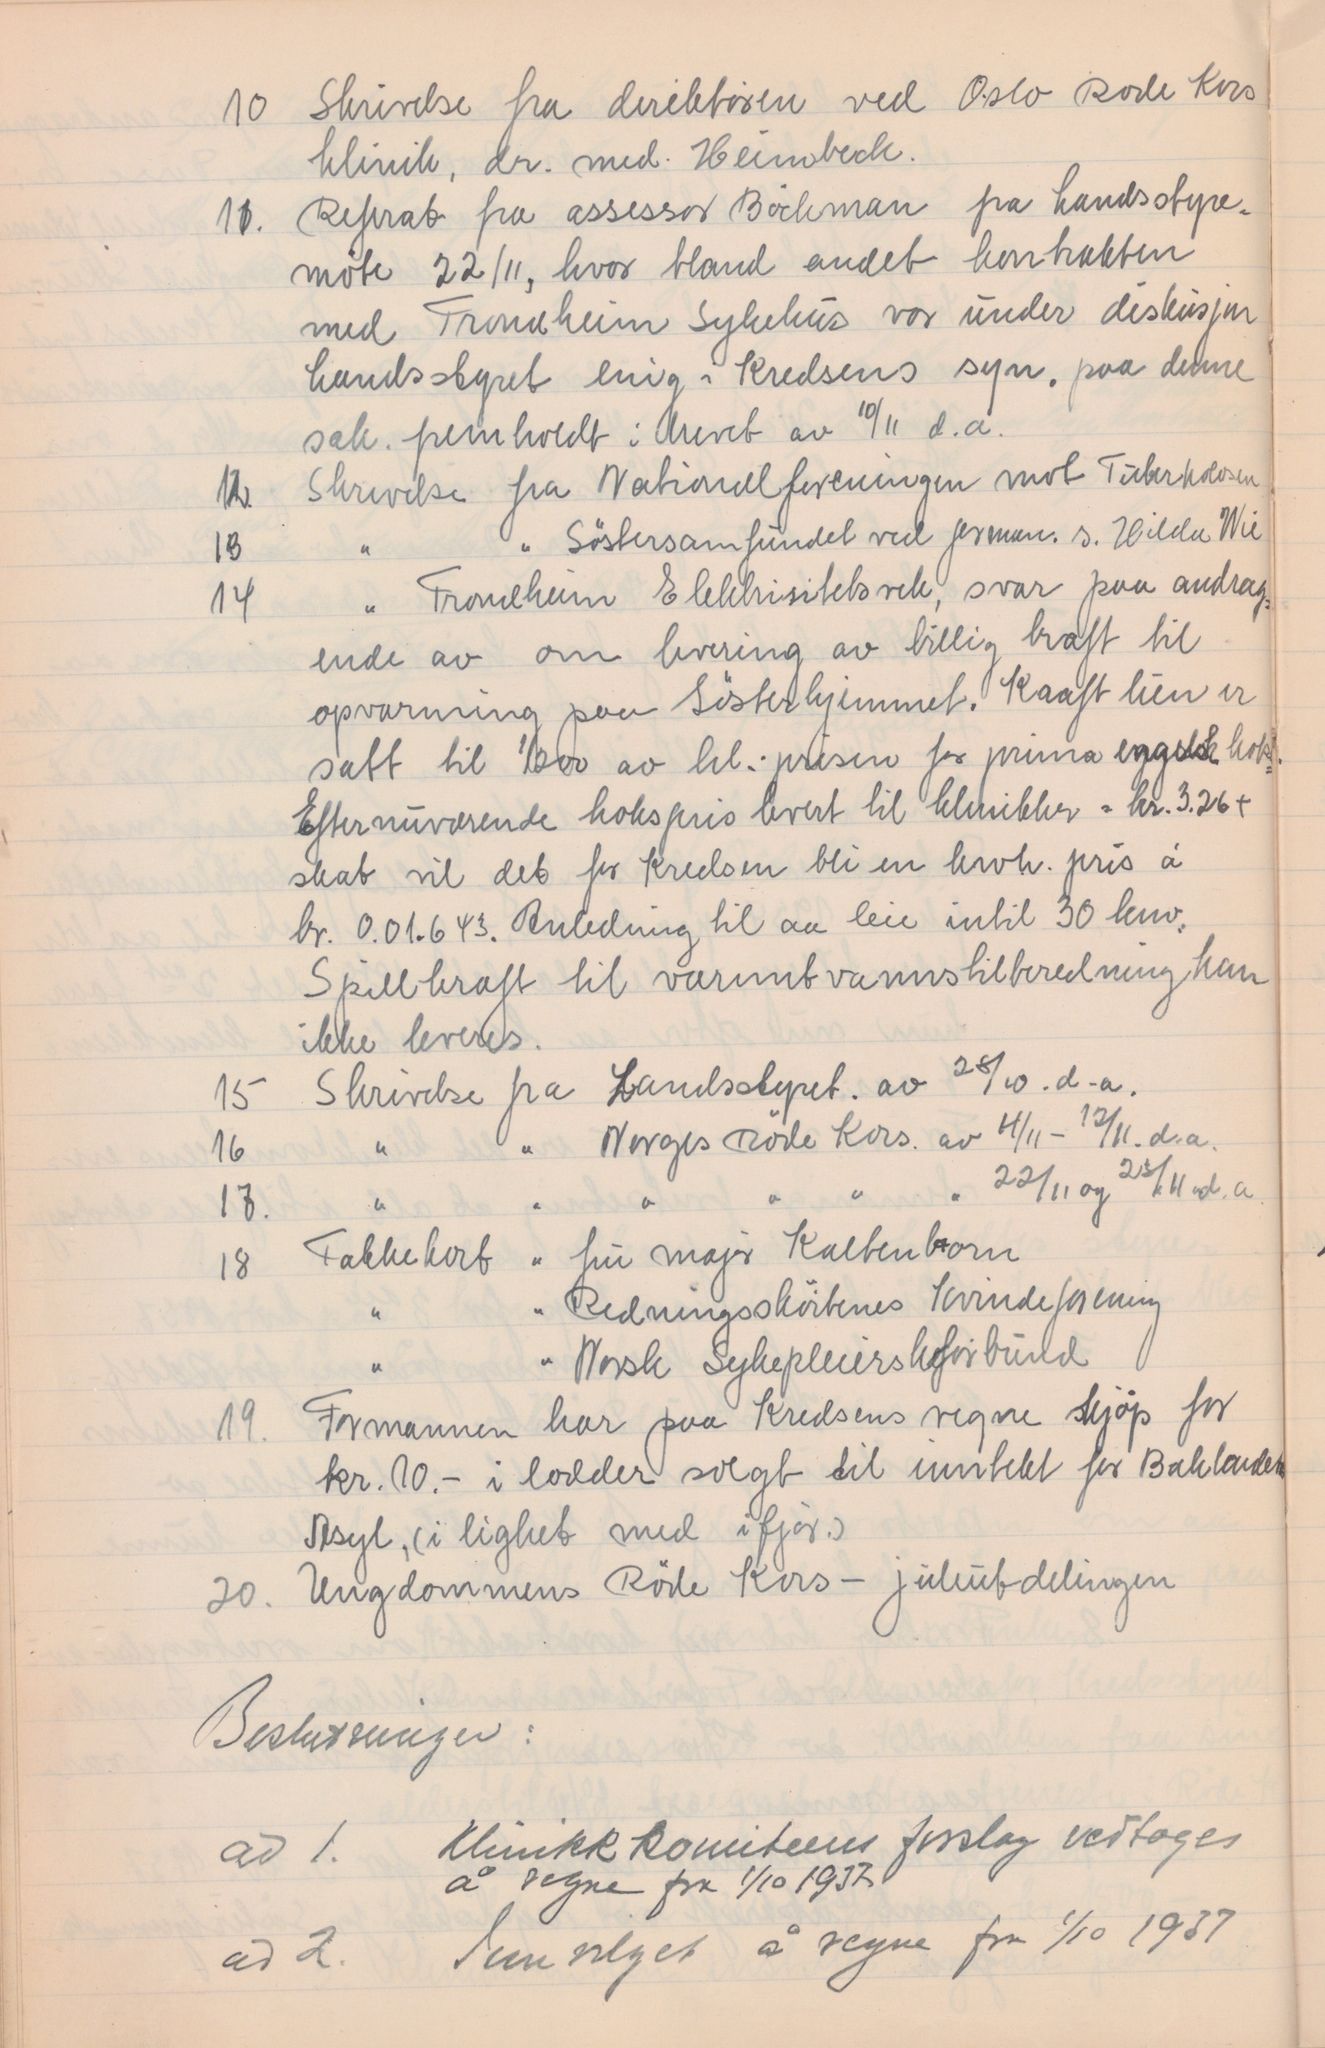 10 Skrivelse fra direktøren ved Oslo Røde Kors
klinik, dr. med. Heimbeck.
11. Referat fra assessor Böckman fra landsstyre-
möte 22/11, hvor bland andet kontrakten
med Trondheim Sykehus var under diskusjon
landsstyret enig i Kredsens syn. paa denne
sak. fremholdt i brevet av 10/11 d.a.
12. Skrivelse fra Nationalforeningen mot Tuberkolosen
13 " " Söstersamfundet ved forman. s. Hilda Wie
14 " Trondheim Elektrisitetsverk, svar paa andrag-
ende av om levering av billig kraft til
opvarming paa Sösterhjemmet. Kraftleien er
satt til 1/300 av hl.-prisen for prima engelsk koks.
Efter nuværende kokspris levert til klinikken = kr. 3.26 +
skat vil det for Kredsen bli en kwh. pris á
kr. 0.01.643. Anledning til aa leie intil 30 kw.
Spillkraft til varmtvannstilberedning kan
ikke leveres.
15 Skrivelse fra Landsstyret. av 28/10. d-a.
16 " " Norges Röde Kors. av 4/11 - 12/11. d.a.
17. " " " " " " 22/11 og 23/11 d.a
18 Takkekort " fru major Kaltenborn
" " Redningssköitenes Kvindeforening
" " Norsk Sykepleierskeforbund
19. Formannen har paa Kredsens regne kjöp for
kr. 10.- i lodder solgt til inntekt for Baklandets
Asyl, (i lighet med ifjor.)
20. Ungdommens Röde Kors - juleutdelingen
Beslutninger:
ad 1. Klinikkkomiteens forslag vedtages
å regne fra 1/10 1937
ad 2. innvilget å regne fra 1/10 1937